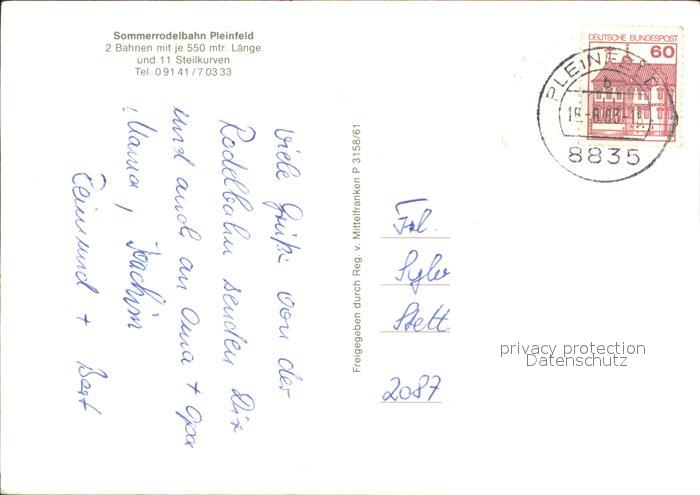 Sommerrodelbahn Pleinfeld
2 Bahnen mit je 550 mtr. Länge
und 11 Steilkurven
Tel. 0 91 41 / 7 03 33
Viele Grüße von der
Rodelbahn senden Dir
und auch an Oma + Opa
! Mama, Joachim
+
Freigegeben durch Reg. v. Mittelfranken P 3158/61
DEUTSCHE BUNDESPOST
60
PLEINFELD
b
8835
Frl.
Stett
2087
privacy protection
Datenschutz